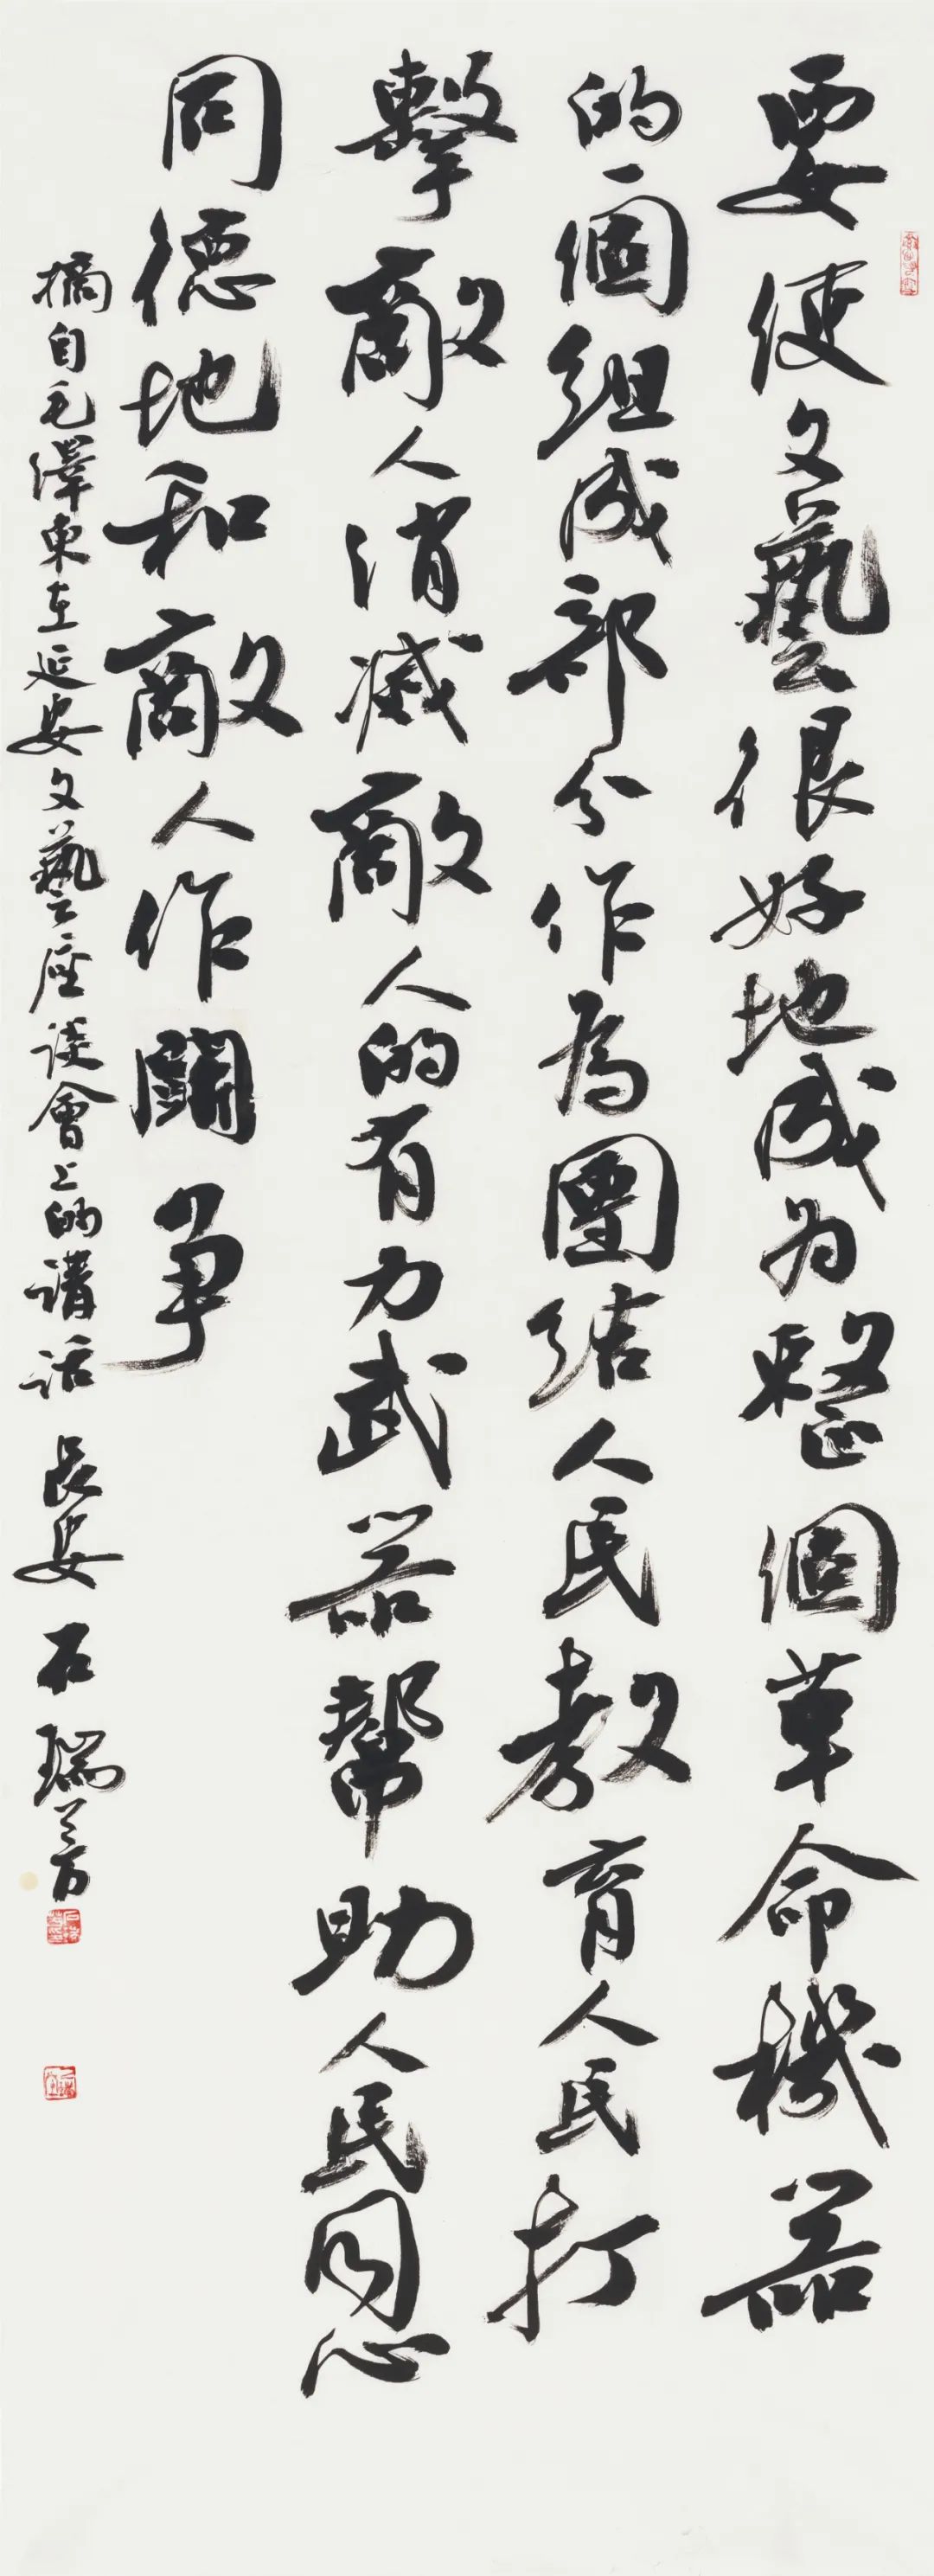 要使文藝很好地成为整個革命機器
的一個組成部分作為團結人民教育人民打
擊敵人消滅敵人的有力武器幫助人民同心
同德地和敵人作鬭爭
摘自毛澤東在延安文藝座談會上的講話 長安 石瑞芳